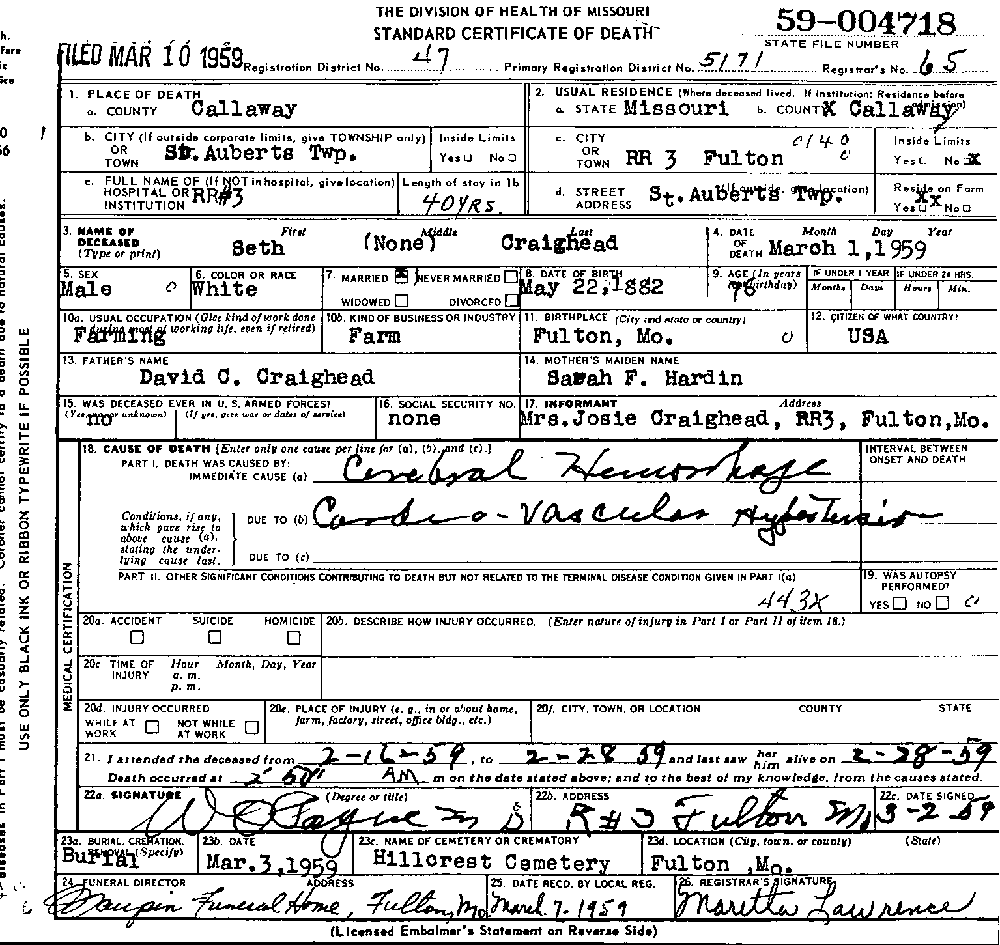 THE DIVISION OF HEALTH OF MISSOURI
STANDARD CERTIFICATE OF DEATH
59-004718
STATE FILE NUMBER
FILED MAR 10 1959 Registration District No. 47 Primary Registration District No. 5171 Registrar's No. 65
1. PLACE OF DEATH
a. COUNTY Callaway
2. USUAL RESIDENCE (Where deceased lived. If institution: Residence before admission)
a. STATE Missouri b. COUNTY Callaway
b. CITY (If outside corporate limits, give TOWNSHIP only) OR TOWN St. Auberts Twp.
Inside Limits Yes No
c. CITY OR TOWN RR 3 Fulton 0140 0
Inside Limits Yes No X
c. FULL NAME OF (If NOT in hospital, give location) HOSPITAL OR INSTITUTION RR#3
Length of stay in 1b 40 yrs.
d. STREET ADDRESS St. Auberts Twp. (If outside, give location)
Reside on Farm Yes XX No
3. NAME OF DECEASED (Type or print) First Middle Last
Seth (None) Craighead
4. DATE OF DEATH Month Day Year
March 1, 1959
5. SEX Male 0
6. COLOR OR RACE White
7. MARRIED X NEVER MARRIED WIDOWED DIVORCED
8. DATE OF BIRTH May 22, 1882
9. AGE (In years last birthday) 76
IF UNDER 1 YEAR Months Days
IF UNDER 24 HRS. Hours Min.
10a. USUAL OCCUPATION (Give kind of work done during most of working life, even if retired) Farming
10b. KIND OF BUSINESS OR INDUSTRY Farm
11. BIRTHPLACE (City and state or country) Fulton, Mo. 0
12. CITIZEN OF WHAT COUNTRY? USA
13. FATHER'S NAME David C. Craighead
14. MOTHER'S MAIDEN NAME Sarah F. Hardin
15. WAS DECEASED EVER IN U. S. ARMED FORCES? (Yes, no or unknown) (If yes, give war or dates of service) no
16. SOCIAL SECURITY NO. none
17. INFORMANT Address
Mrs. Josie Craighead, RR3, Fulton, Mo.
18. CAUSE OF DEATH [Enter only one cause per line for (a), (b), and (c).]
PART I. DEATH WAS CAUSED BY:
IMMEDIATE CAUSE (a) Cerebral Hemorrhage
INTERVAL BETWEEN ONSET AND DEATH
Conditions, if any, which gave rise to above cause (a), stating the underlying cause last.
DUE TO (b) Cardio-Vascular Hypertension
DUE TO (c)
PART II. OTHER SIGNIFICANT CONDITIONS CONTRIBUTING TO DEATH BUT NOT RELATED TO THE TERMINAL DISEASE CONDITION GIVEN IN PART I(a)
443X
19. WAS AUTOPSY PERFORMED? YES NO
20a. ACCIDENT SUICIDE HOMICIDE
20b. DESCRIBE HOW INJURY OCCURRED. (Enter nature of injury in Part I or Part II of item 18.)
20c. TIME OF INJURY Hour Month, Day, Year
a. m.
p. m.
20d. INJURY OCCURRED WHILE AT WORK NOT WHILE AT WORK
20e. PLACE OF INJURY (e. g., in or about home, farm, factory, street, office bldg., etc.)
20f. CITY, TOWN, OR LOCATION COUNTY STATE
21. I attended the deceased from 2-16-59, to 2-28 59 and last saw her him alive on 2-28-59
Death occurred at 2:50 AM m on the date stated above; and to the best of my knowledge, from the causes stated.
22a. SIGNATURE (Degree or title)
22b. ADDRESS R#3 Fulton Mo
22c. DATE SIGNED 3-2 59
23a. BURIAL, CREMATION, REMOVAL (Specify) Burial
23b. DATE Mar. 3, 1959
23c. NAME OF CEMETERY OR CREMATORY Hillcrest Cemetery
23d. LOCATION (City, town, or county) (State) Fulton, Mo.
24. FUNERAL DIRECTOR ADDRESS
Maupin Funeral Home, Fulton, Mo.
25. DATE RECD. BY LOCAL REG. March 7-1959
26. REGISTRAR'S SIGNATURE Maretta Lawrence
(Licensed Embalmer's Statement on Reverse Side)
MEDICAL CERTIFICATION
USE ONLY BLACK INK OR RIBBON TYPEWRITE IF POSSIBLE